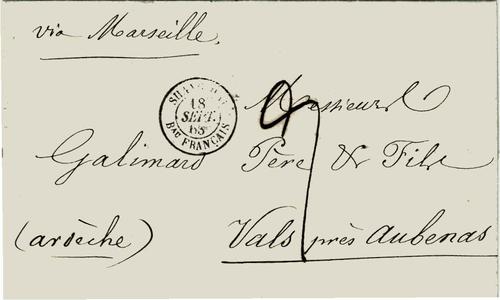 via Marseille.
SHANG-HAI
18
SEPT.
65
BAU FRANÇAIS
Messieurs
Galimard Père & Fils
(ardèche) Vals près Aubenas